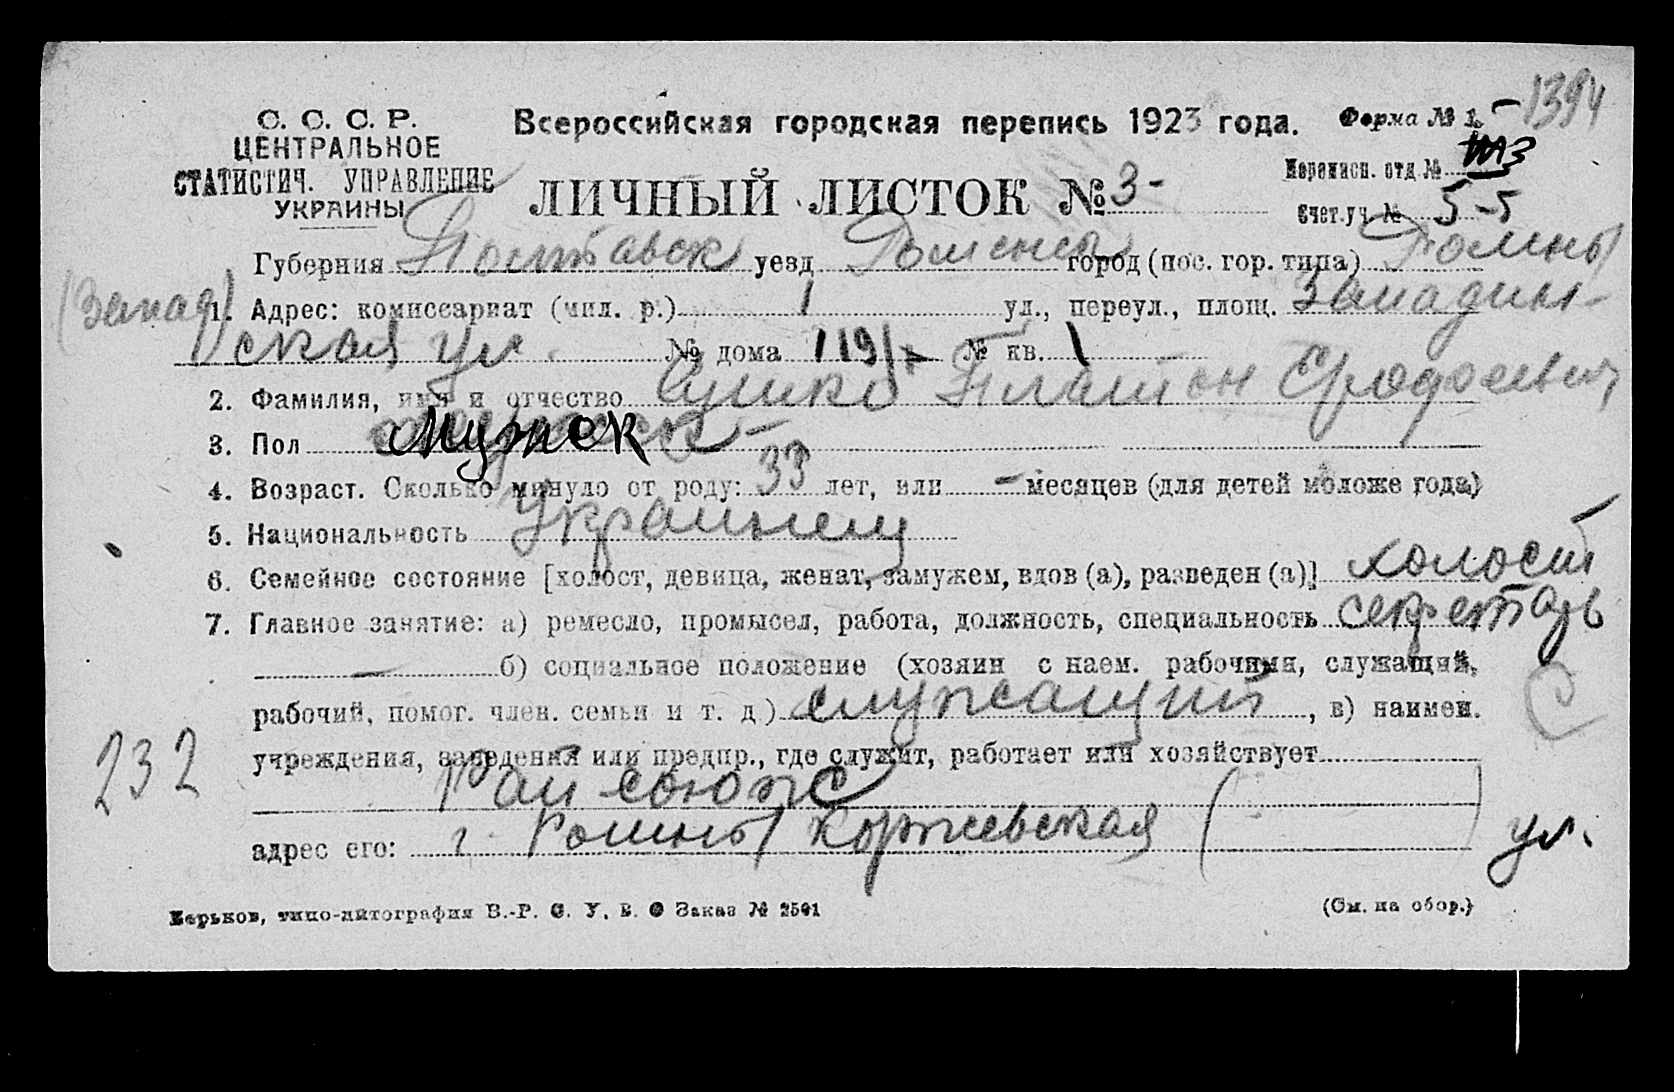 С. С. С. Р.
ЦЕНТРАЛЬНОЕ
СТАТИСТИЧ. УПРАВЛЕНИЕ
УКРАИНЫ
Всероссийская городская перепись 1923 года.
Форма № 1. 1394
ЛИЧНЫЙ ЛИСТОК № 3-
Переписн. отд №
Счет. уч. № 5-5
Губерния Полтавск уезд Роменск город (пос. гор. типа) Ромны
(Запад) 1. Адрес: комиссариат (мил. р.) 1 ул., переул., площ. Западин-
ская ул. № дома 119/ № кв. 1
2. Фамилия, имя и отчество Сушко Платон
3. Пол Мужск
4. Возраст. Сколько минуло от роду: 33 лет, или - месяцев (для детей моложе года)
5. Национальность Украинец
6. Семейное состояние [холост, девица, женат, замужем, вдов (а), разведен (а)] холост
7. Главное занятие: а) ремесло, промысел, работа, должность, специальность секретарь
— б) социальное положение (хозяин с наем. рабочими, служащий,
рабочий, помог. член. семьи и т. д) служащий, в) наимен. С
учреждения, заведения или предпр., где служит, работает или хозяйствует
232
Райсоюз
адрес его: г. Ромны Коржевская ( ) ул.
Харьков, типо-литография В.-Р. С. У. В. О Заказ № 2501
(См. на обор.)